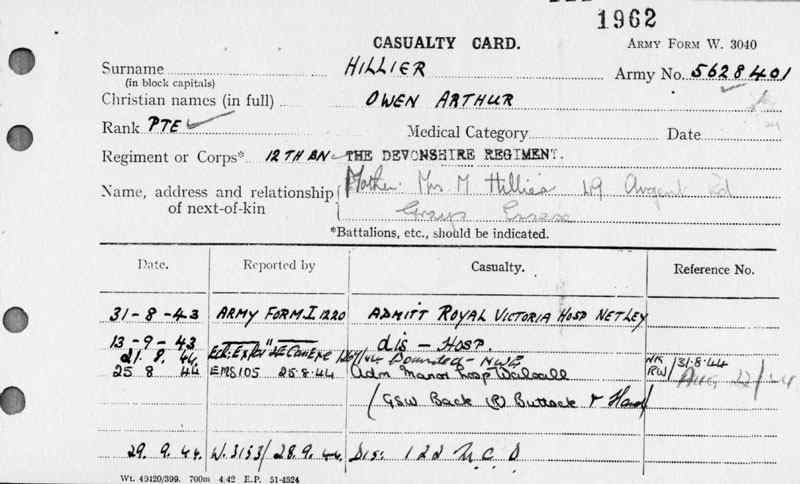 1962
CASUALTY CARD. ARMY FORM W. 3040
Surname HILLIER Army No. 5628401
(in block capitals)
Christian names (in full) OWEN ARTHUR
Rank PTE Medical Category Date
Regiment or Corps* 12TH BN THE DEVONSHIRE REGIMENT.
Name, address and relationship of next-of-kin Mother. Mrs M Hillier 49 Argent Rd
Grays Essex
*Battalions, etc., should be indicated.
Date. Reported by Casualty. Reference No.
31-8-43 ARMY FORM I 1220 ADMITT ROYAL VICTORIA HOSP NETLEY
13-9-43 " dis - HOSP.
21. 8. 44 Wounded - NWE
25 8 44 EMS 105 25.8.44 Adm Manor Hosp Walsall 31.8.44
(GSW Back (R) Buttock & Hand)
29. 9. 44. W.3153/28.9.44. Dis: 122 M.C.D
Wt. 49420/399. 700m 4/42 E.P. 51-4524